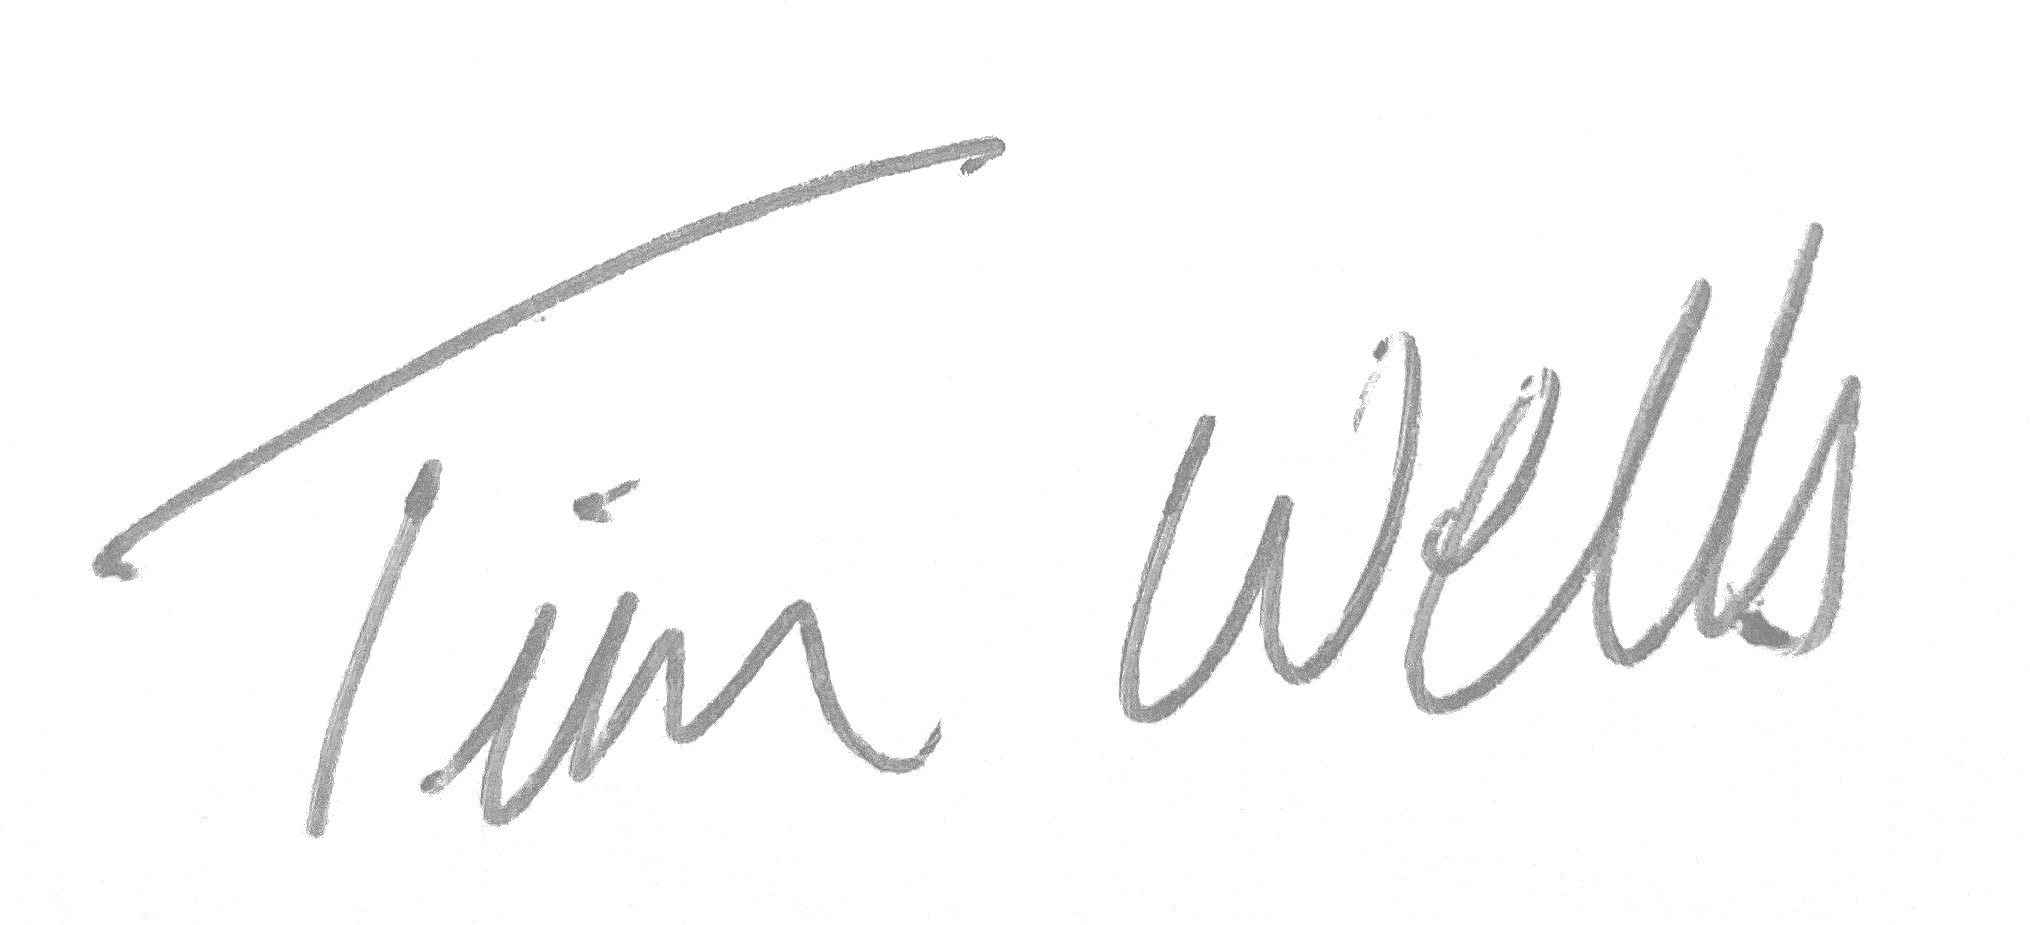 Tim Wells